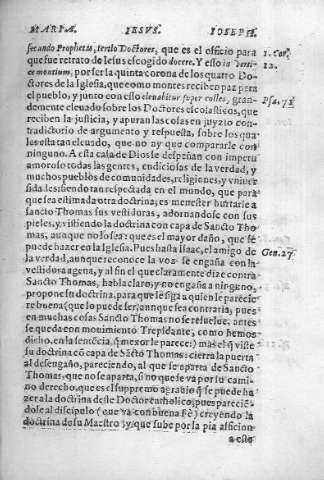 MARIA, IESVS, IOSEPH.
secundo Prophetas, tertio Doctores, que es el officio para
que fue retrato de Iesus escogido docere. Y esso in verti-
ce montium, por ser la quinta corona de los quatro Do-
ctores de la Iglesia, que como montes reciben paz para
el pueblo, y junto con esso eleuabitur super colles, gran-
demente eleuado sobre los Doctores escolasticos, que
reciben la justicia, y apuran las colas en juyzio con-
tradictorio de argumento y respuesta, sobre los qua-
les esta tan eleuado, que no ay que compararle con
ninguno. A esta casa de Dios se despeñan con impetu
amoroso todas las gentes, cudiciosas de la verdad, y
muchos pueblos de comunidades, religiones, y vniuer-
sidades: siendo tan respectada en el mundo, que para
que sea estimada otra doctrina, es menester hurtarle a
sancto Thomas sus vestiduras, adornandose con sus
pieles, y vistiendo la doctrina con capa de Sancto Tho
mas, aunque no lo sea: que es el mayor daño, que se
puede hazer en la Iglesia. Pues hasta Isaac, el amigo de
la verdad, aunque reconoce la voz se engaña con la
vestidura agena, y al fin el que claramente dize contra
Sancto Thomas, habla claro, y no engaña a ninguno,
propone su doctrina, para que le siga a quien le parecie
re buena (que lo puede ser) aunque sea contraria, pues
en muchas cosas Sancto Thomas no se resuelue. antes
se queda con mouimiento Trepidante, como hemos
dicho, en la sentẽcia, q̃ mejor le parece:) mas el q̃ viste
su doctrina cõ capa de Sãcto Thomas: cierra la puerta
al desengaño, pareciendo, al que se aparta de Sancto
Thomas, que no se aparta, si no que se va por su cami-
no derecho, que es el supremo agrauio q̃ se puede ha
zer a la doctrina deste Doctor catholico; pues parecien
dole al discipulo (que va con buena Fè) creyendo la
doctrina de su Maestro; y que sube por la pia afficion
a esto
1. Cor.
12.
Psa. 71
Gen. 27.